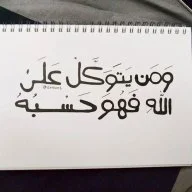 وَمَن يَتَوَكَّلْ عَلَى
اللهِ فَهُوَ حَسْبُهُ